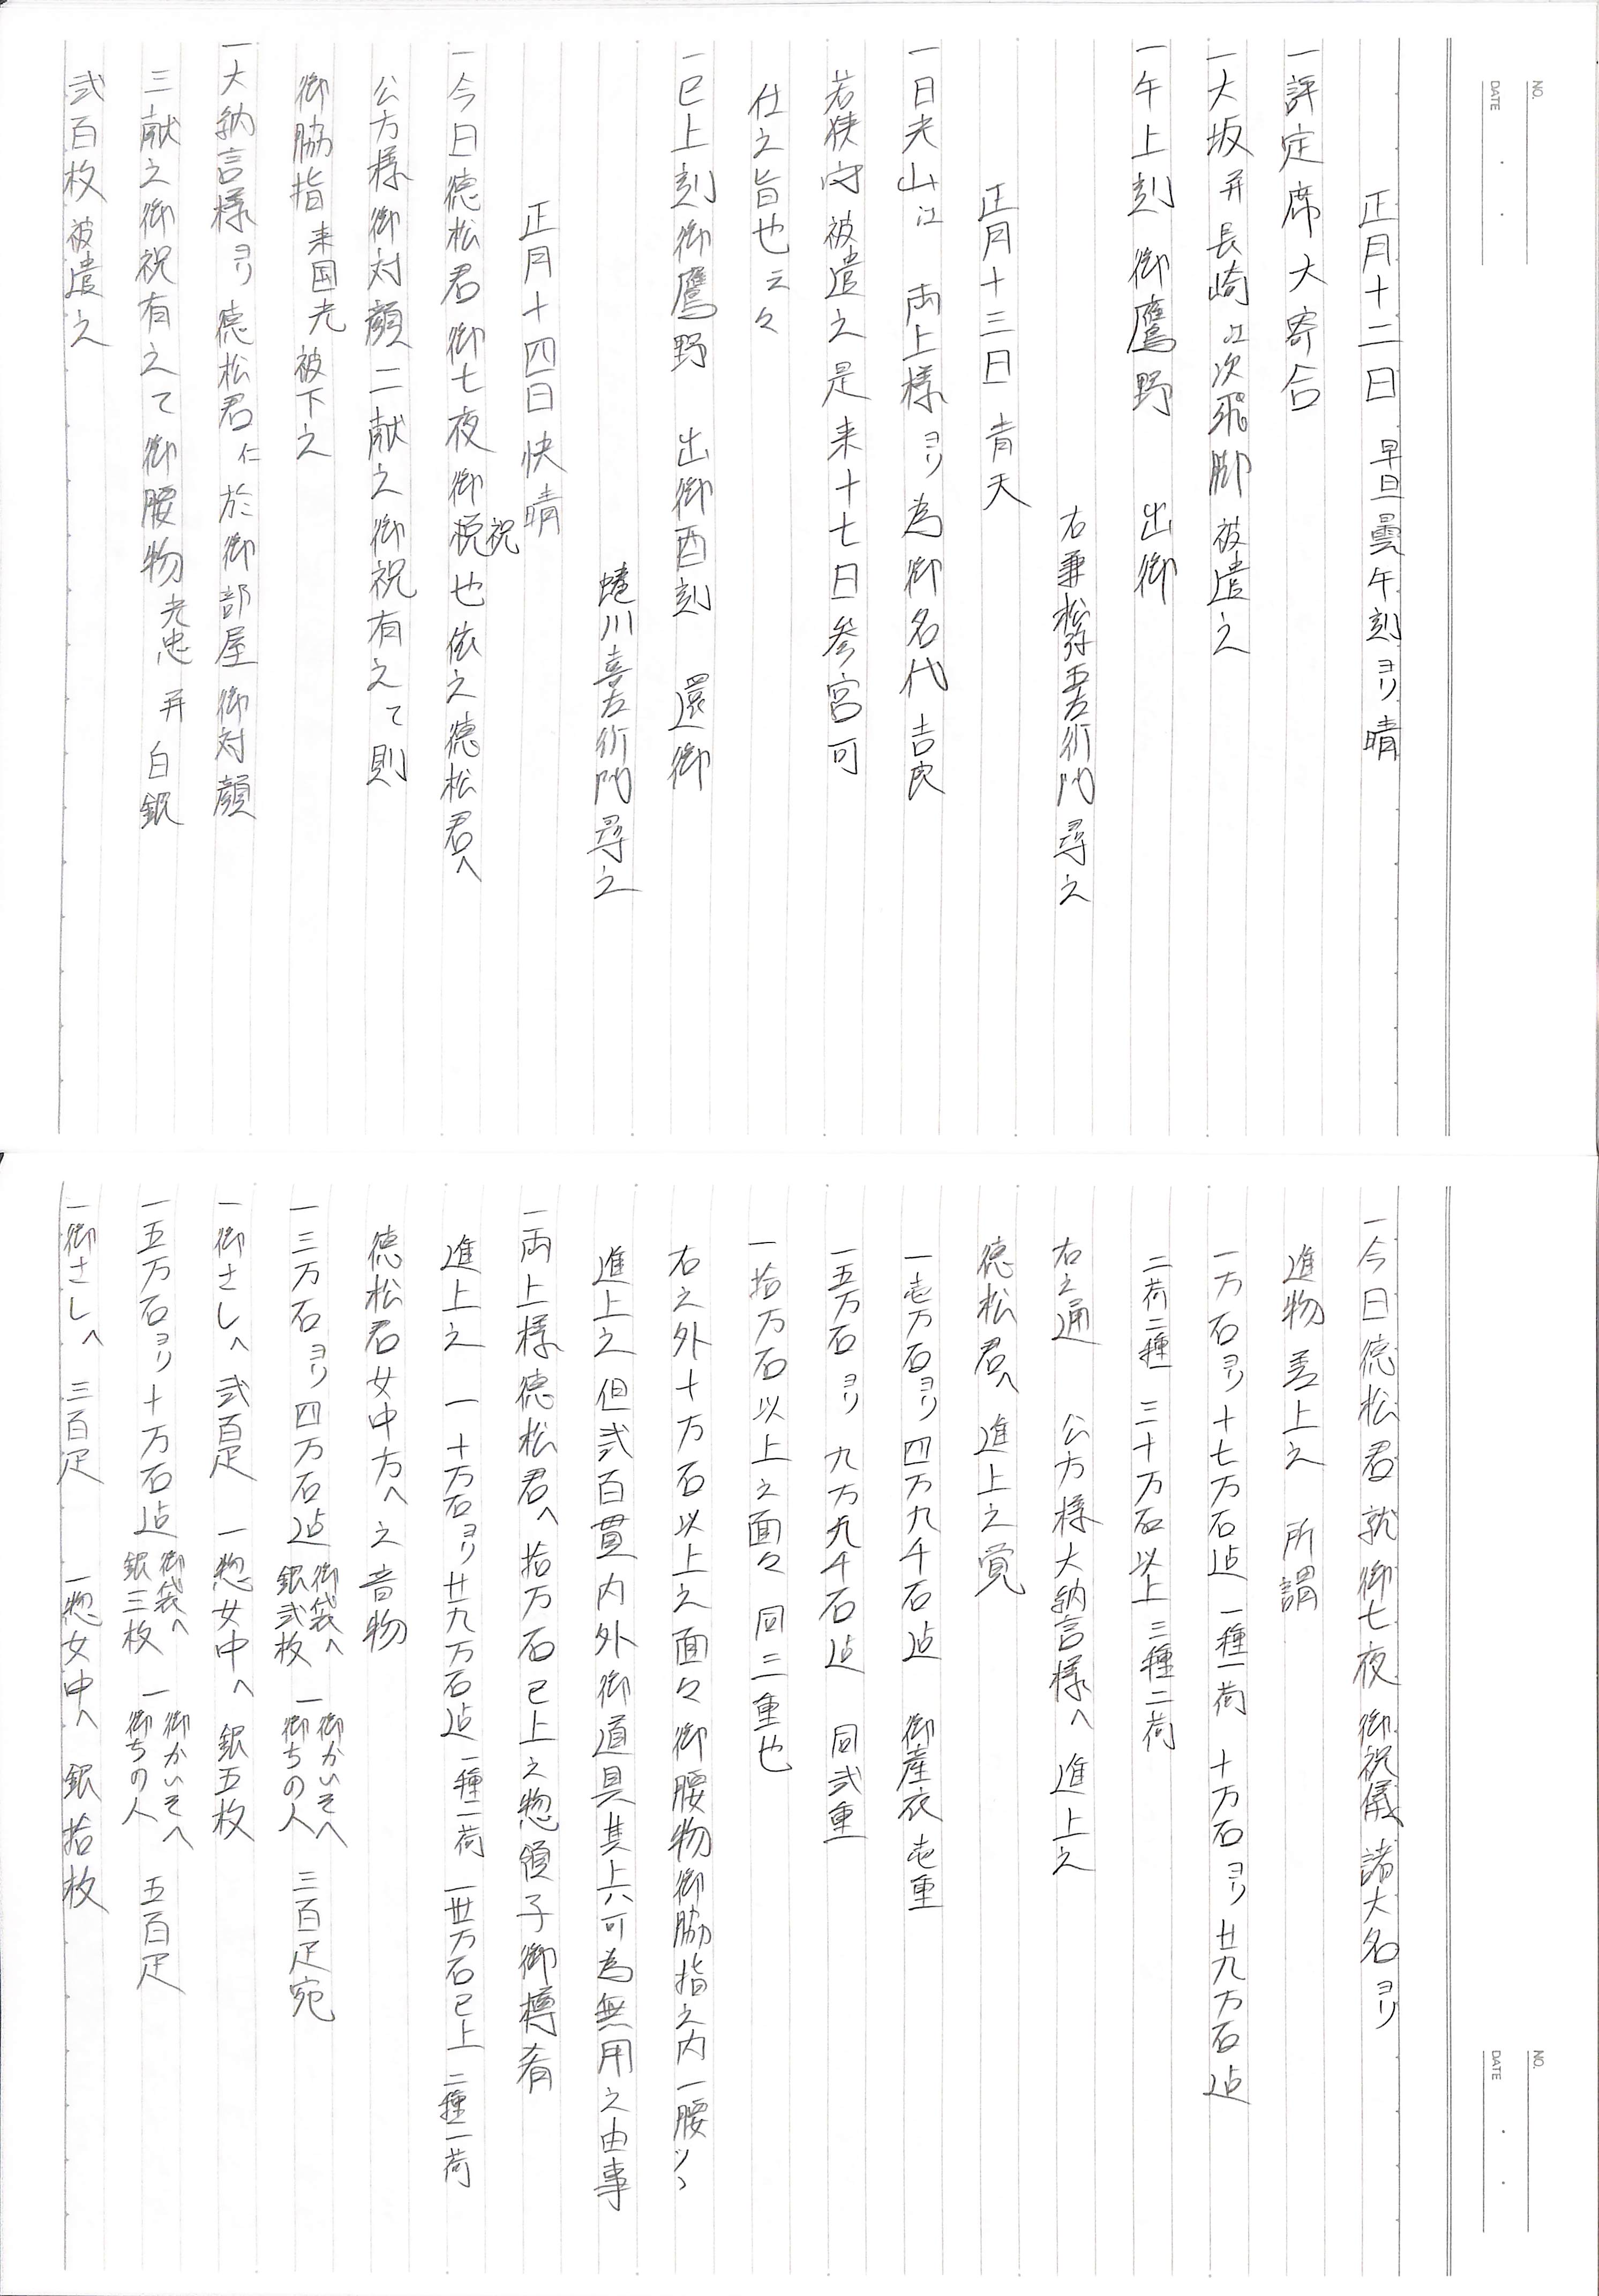 NO.
DATE
正月十二日 早旦曇午刻ヨリ晴
一評定席大寄合
一大坂并長崎江次飛脚被遣之
一午上刻 御鷹野 出御
右兼松弥五左衛門尋之
正月十三日 青天
一日光山江 両上様ヨリ為御名代吉良
若狭守被遣之是来十七日参宮可
仕之旨也云々
一巳上刻御鷹野 出御酉刻 還御
蜷川喜左衛門尋之
正月十四日快晴
一今日徳松君御七夜御悦祝也依之徳松君へ
公方様御対顔二献之御祝有之て則
御脇指来国光被下之
一大納言様ヨリ徳松君仁於御部屋御対顔
三献之御祝有之て御腰物光忠并白銀
弐百枚被遣之
NO.
DATE
一今日徳松君就御七夜御祝儀諸大名ヨリ
進物差上之 所謂
一万石ヨリ十七万石迠 一種一荷 十万石ヨリ廿九万石迠
二荷二種 三十万石以上三種二荷
右之通 公方様大納言様へ進上之
徳松君へ 進上之覚
一壱万石ヨリ四万九千石迠 御産衣壱重
一五万石ヨリ 九万九千石迠 同弐重
一拾万石以上之面々 同三重也
右之外十万石以上之面々御腰物御脇指之内一腰ツヽ
進上之但弐百貫内外御道具其上ハ可為無用之由事
一両上様徳松君へ拾万石已上之惣領子御樽肴
進上之 一十万石ヨリ廿九万石迠一種一荷 一卅万石已上二種一荷
徳松君女中方へ之音物
一三万石ヨリ四万石迠 御袋へ銀弐枚 一御かいそへ御ちの人 三百疋宛
一御さしへ弐百疋 一惣女中へ 銀五枚
一五万石ヨリ十万石迠 御袋へ銀三枚 一御かいそへ御ちの人 五百疋
一御さしへ 三百疋 一惣女中へ 銀拾枚